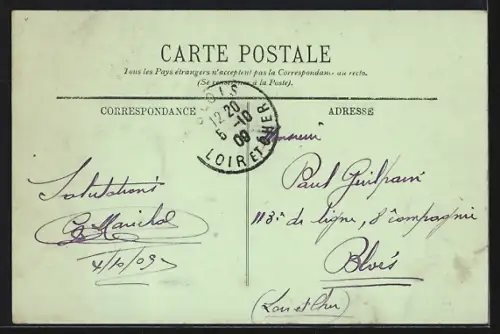 CARTE POSTALE
Tous les Pays étrangers n'acceptent pas la Correspondance au recto.
(Se renseigner à la Poste).
CORRESPONDANCE
ADRESSE
BLOIS
12 20
5 - 10
09
LOIR ET CHER
Monsieur
Paul
113e de ligne, 8e compagnie
Blois
(Loir et Cher)
Salutations
4/10/09